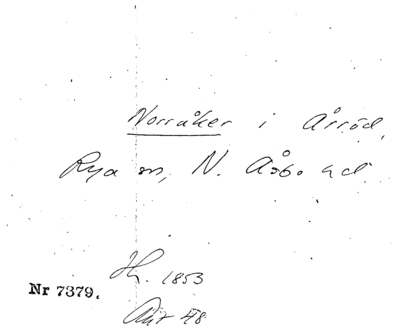 Norråker i Årröd,
Rya sn, N. Åsbo hd
Hh. 1853
Nr 7379.
Akt 48